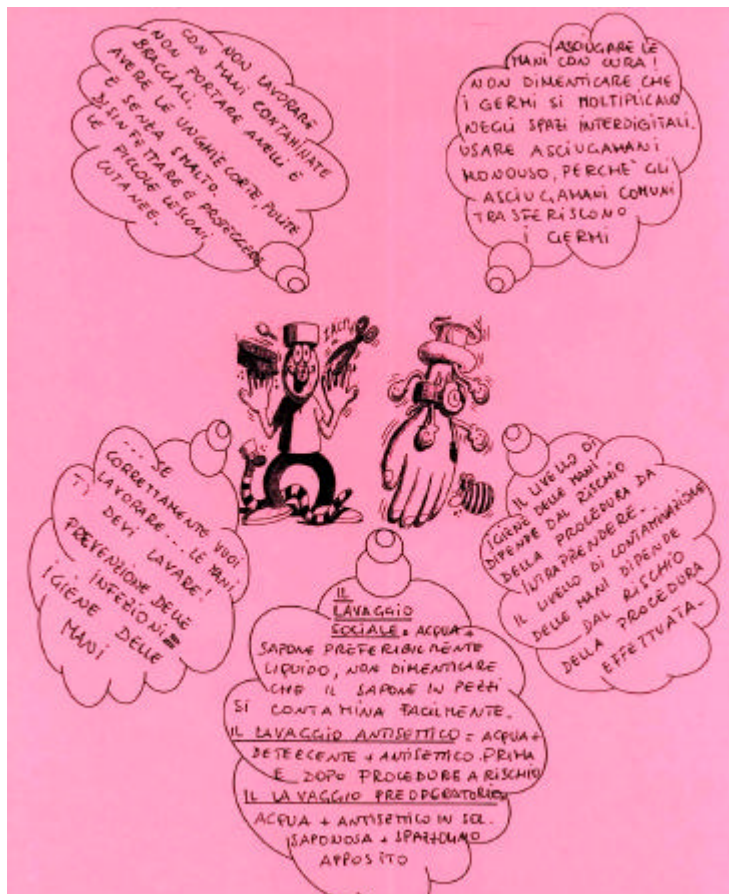 NON LAVORARE
CON MANI CONTAMINATE
NON PORTARE ANELLI E
BRACCIALI.
AVERE LE UNGHIE CORTE, PULITE
E SENZA SMALTO.
DISINFETTARE E PROTEGGERE
LE PICCOLE LESIONI
CUTANEE.
ASCIUGARE LE
MANI CON CURA!
NON DIMENTICARE CHE
I GERMI SI MOLTIPLICANO
NEGLI SPAZI INTERDIGITALI.
USARE ASCIUGAMANI
MONOUSO, PERCHE' GLI
ASCIUGAMANI COMUNI
TRASFERISCONO
I GERMI
.... SE
CORRETTAMENTE VUOI
LAVORARE ... LE MANI
TI DEVI LAVARE!
PREVENZIONE DELLE
INFEZIONI =
IGIENE DELLE
MANI
IL LIVELLO DI
IGIENE DELLE MANI
DIPENDE DAL RISCHIO
DELLA PROCEDURA DA
INTRAPRENDERE.
IL LIVELLO DI CONTAMINAZIONE
DELLE MANI DIPENDE
DAL RISCHIO
DELLA PROCEDURA
EFFETTUATA.
IL
LAVAGGIO
SOCIALE = ACQUA +
SAPONE PREFERIBILMENTE
LIQUIDO, NON DIMENTICARE
CHE IL SAPONE IN PEZZI
SI CONTAMINA FACILMENTE.
IL LAVAGGIO ANTISETTICO = ACQUA +
DETERGENTE + ANTISETTICO. PRIMA
E DOPO PROCEDURE A RISCHIO
IL LAVAGGIO PREOPERATORIO
ACQUA + ANTISETTICO IN SOL.
SAPONOSA + SPAZZOLINO
APPOSITO